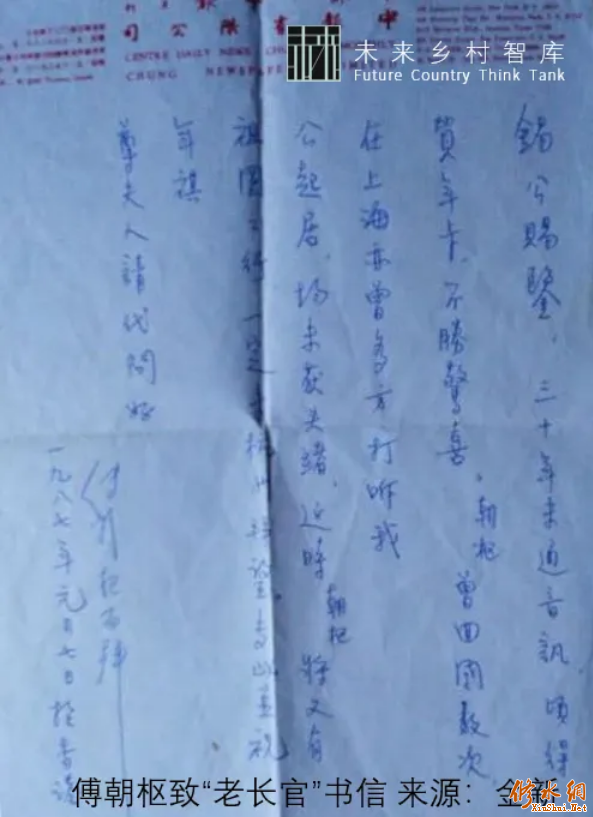 中報有限公司
CENTRE DAILY NEWS
CHUNG NEWSPAPER
未来乡村智库
Future Country Think Tank
錫公賜鑒，三十年未通音訊，頃得
賀年卡，不勝驚喜，朝枢曾回國數次
在上海亦曾多方打听我
公起居，均未获头緒，近時朝枢將又有
祖國之行，一定去杭州拜
年祺
尊夫人請代問好
傅朝枢
一九八七年元月七日於香港
傅朝枢致“老长官”书信 来源：金新
修水网
www.XiuShui.Net